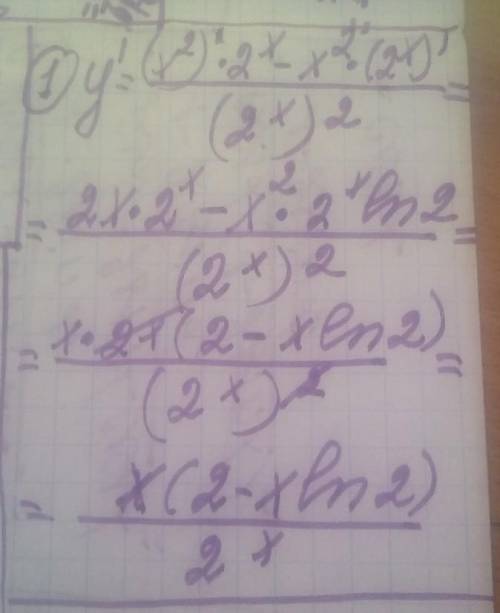 ① y' = (x²)'·2ˣ - x²·(2ˣ)' / (2ˣ)² =
= 2x·2ˣ - x²·2ˣ ln2 / (2ˣ)² =
= x·2ˣ(2 - x ln2) / (2ˣ)² =
= x(2 - x ln2) / 2ˣ